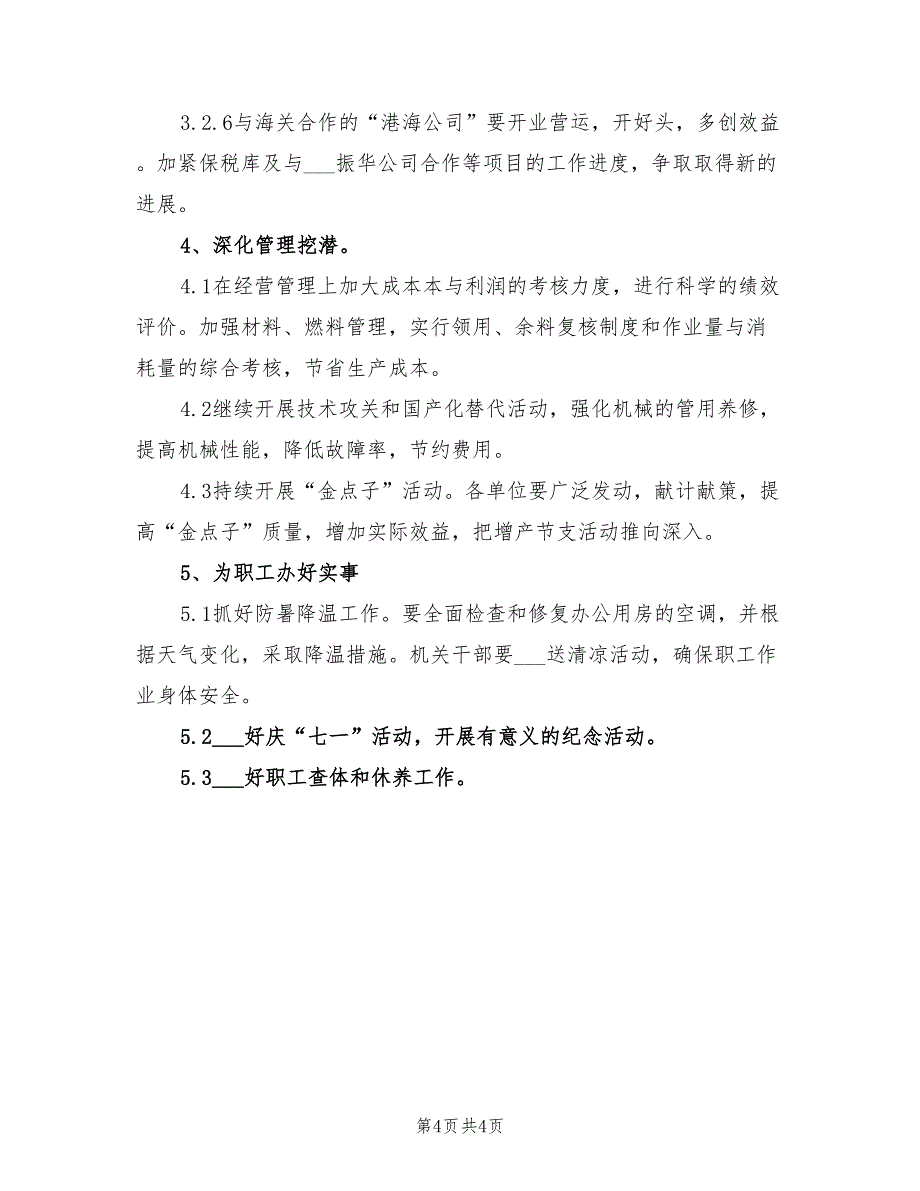 3.2.6与海关合作的“港海公司”要开业营运，开好头，多创效益
。加紧保税库及与___振华公司合作等项目的工作进度，争取取得新的
进展。
4、深化管理挖潜。
4.1在经营管理上加大成本本与利润的考核力度，进行科学的绩效
评价。加强材料、燃料管理，实行领用、余料复核制度和作业量与消
耗量的综合考核，节省生产成本。
4.2继续开展技术攻关和国产化替代活动，强化机械的管用养修，
提高机械性能，降低故障率，节约费用。
4.3持续开展“金点子”活动。各单位要广泛发动，献计献策，提
高“金点子”质量，增加实际效益，把增产节支活动推向深入。
5、为职工办好实事
5.1抓好防暑降温工作。要全面检查和修复办公用房的空调，并根
据天气变化，采取降温措施。机关干部要___送清凉活动，确保职工作
业身体安全。
5.2___好庆“七一”活动，开展有意义的纪念活动。
5.3___好职工查体和休养工作。
第4页 共4页